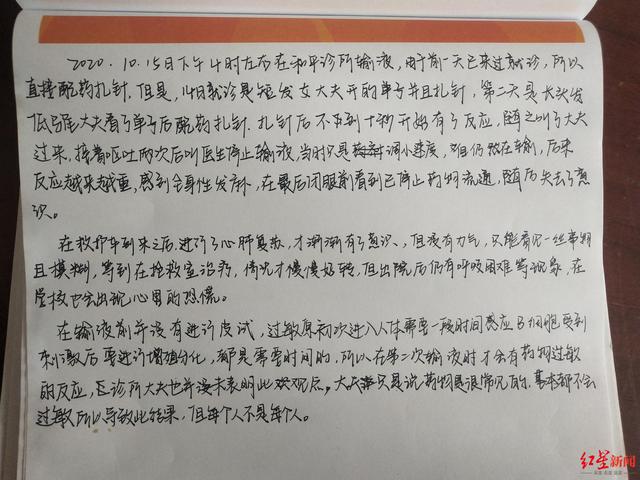 2020.10.15日下午4时左右在和平诊所输液,由于前一天已来过就诊,所以
直接配药扎针.但是,14日就诊是短发女大夫开的单子并且扎针,第二天是长头发
低马尾大夫看了单子后配药扎针.扎针后不到十秒开始有了反应,随之叫了大夫
过来,接着呕吐两次后叫医生停止输液,当时只是调小速度,但仍然在输,后来
反应越来越重,感到全身性发麻,在最后闭眼前看到已停止药物流通,随后失去了意
识。
在救护车到来之后,进行了心肺复苏,才渐渐有了意识、但没有力气,只能看见一丝事物
且模糊,等到在抢救室治疗,情况才慢慢好转,但出院后仍有呼吸困难等现象,在
学校也会出现心里的恐慌。
在输液前并没有进行皮试,过敏原初次进入人体需要一段时间感应B细胞受到
刺激后要进行增殖分化,都是需要时间的,所以在第二次输液时才会有药物过敏
的反应,且诊所大夫也并没未表明此观点,大夫只是说药物是很常见的,基本都不会
过敏所以导致此结果,但每个人不是每个人。
红星新闻